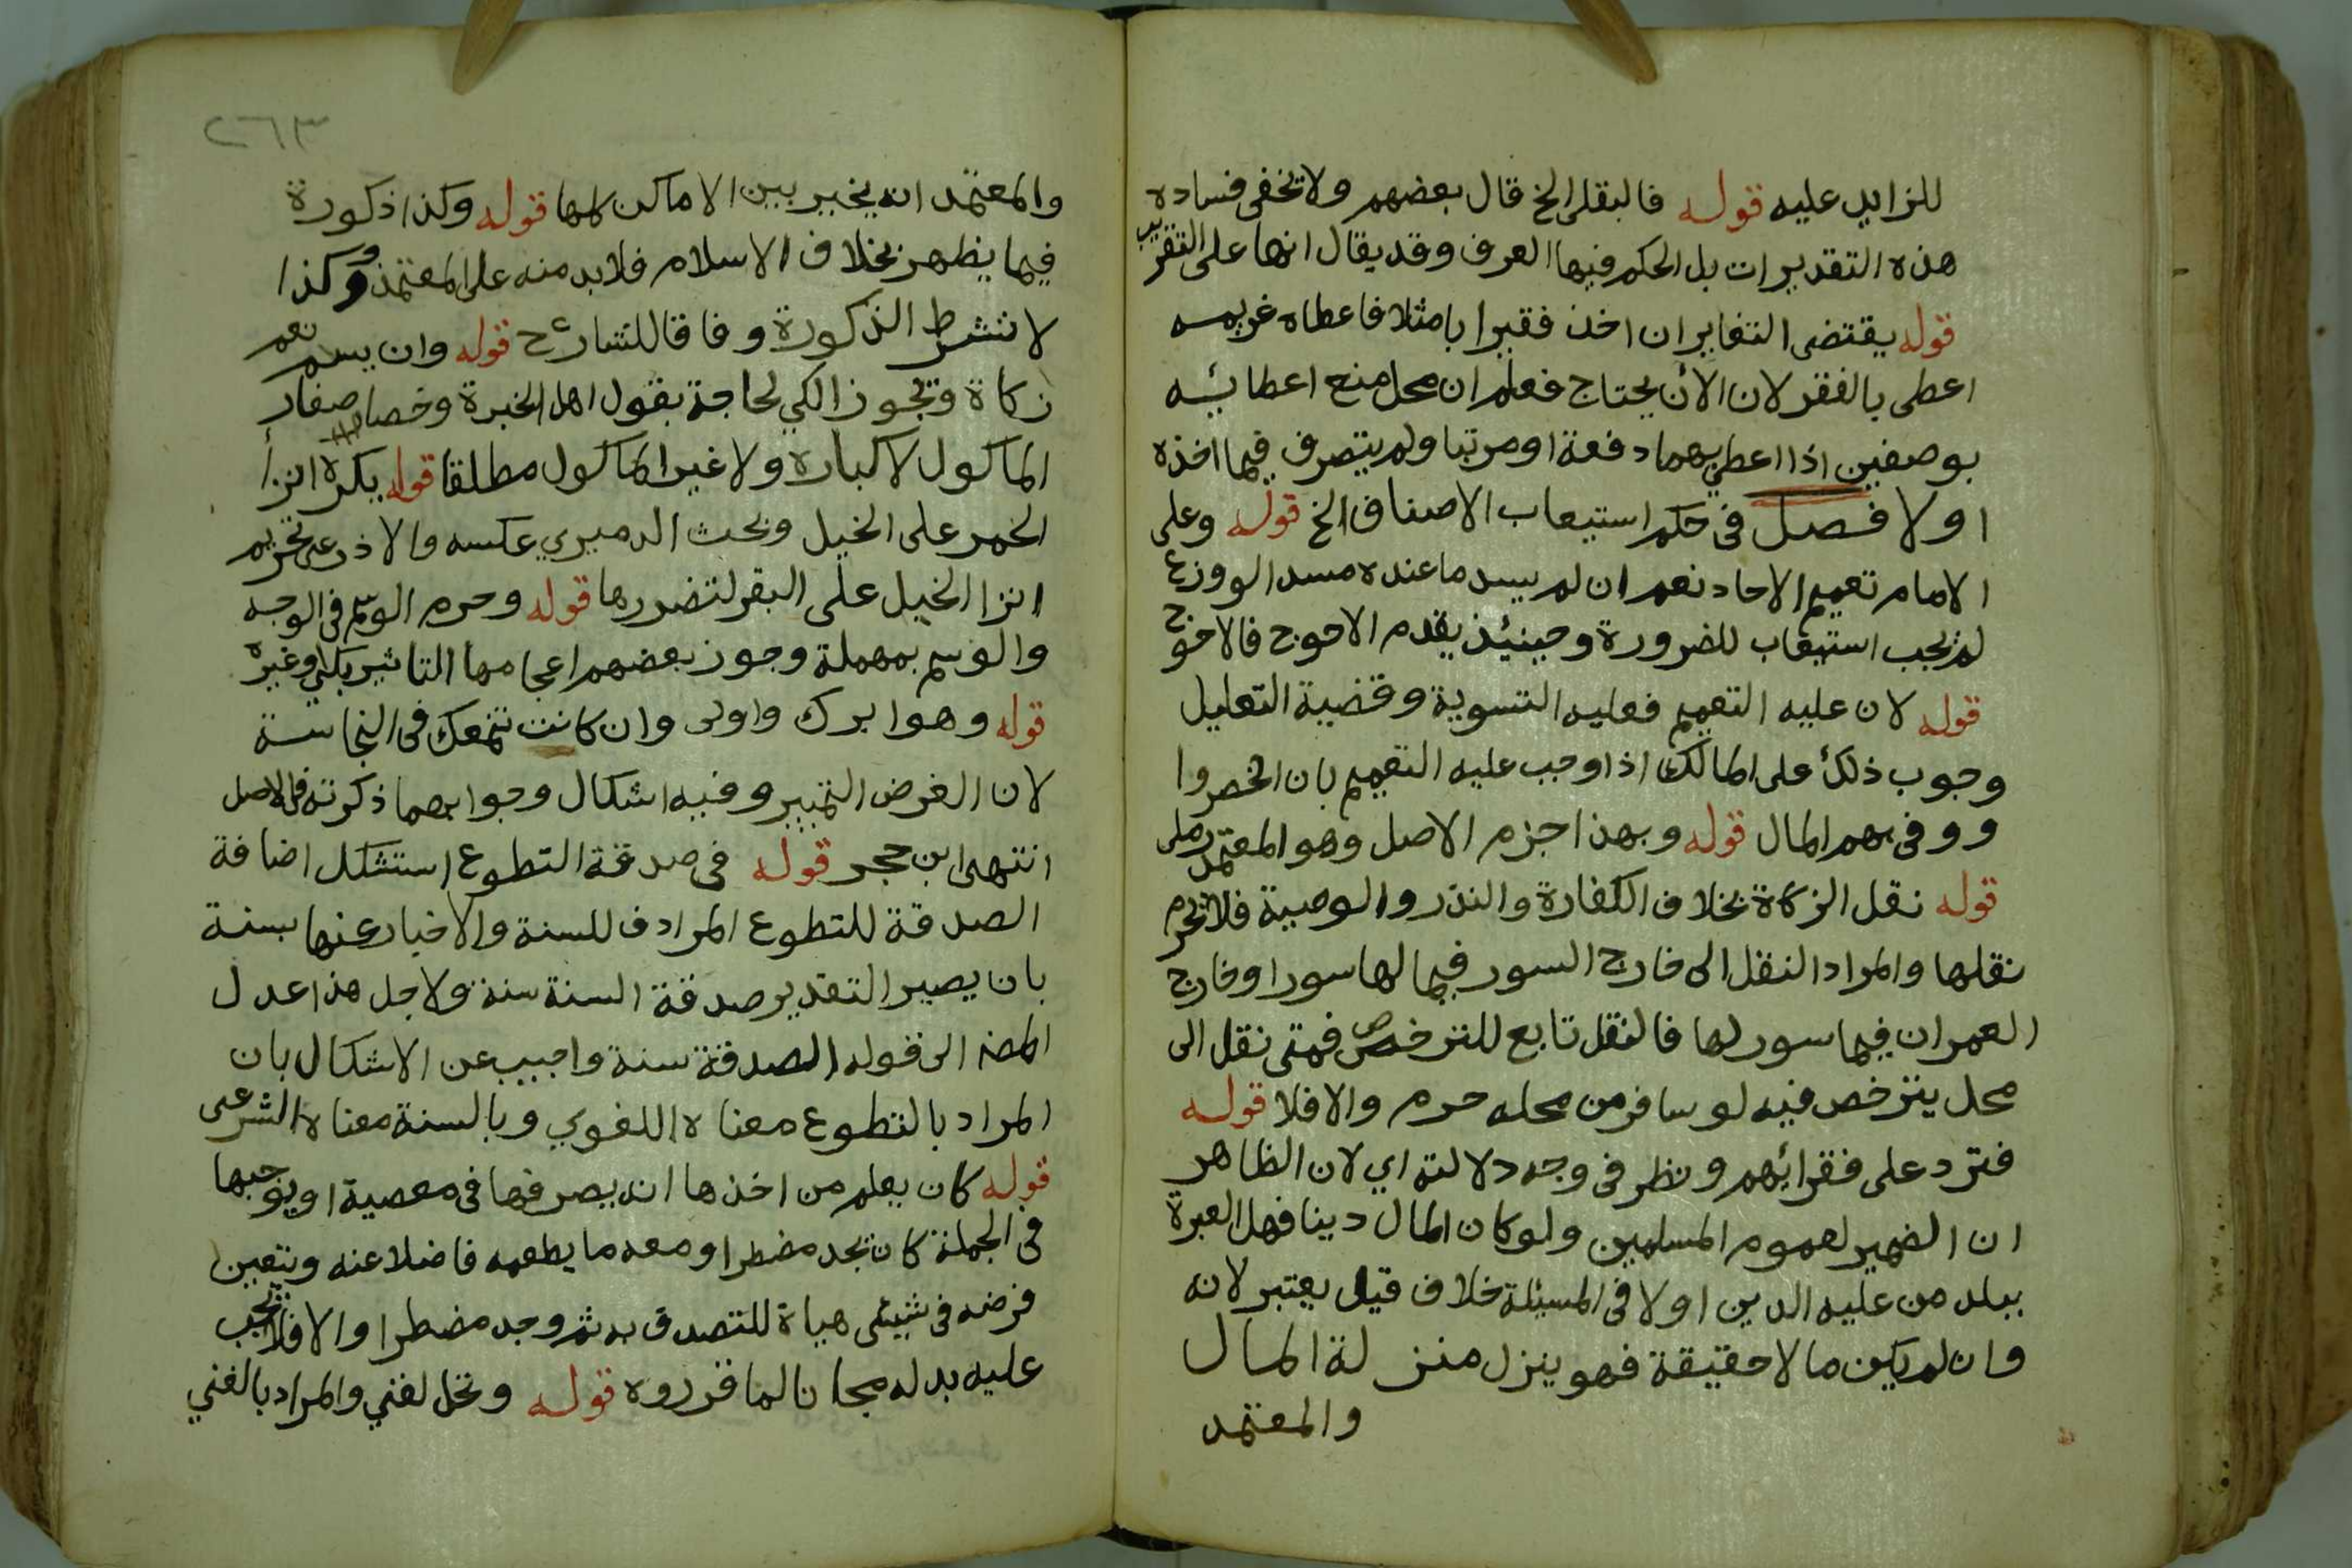 للزايد عليه قوله فالبقلى الخ قال بعضهم ولا تخفى فساده
هذه التقديرات بل الحكم فيها العرف وقد يقال انها على التقريب
قوله يقتضى التغاير ان اخذ فقيرا با مثلا فاعطاه غريمه
اعطى بالفقر لان الآن يحتاج فعلم ان محل منع اعطائه
بوصفين اذا اعطى بهما دفعة او مرتبا ولم يتصرف فيما اخذه
اولا فصل فى حكم استيعاب الاصناف الخ قوله وعلى
الامام تعميم الاحاد نعم ان لم يسد ما عنده مسدا لو وزع
لم يجب استيعاب للضرورة وحينئذ يقدم الاحوج فالاحوج
قوله لان عليه التعميم فعليه التسوية وقضية التعليل
وجوب ذلك على المالك اذا وجب عليه التعميم بان انحصروا
ووفى بهم المال قوله وبهذا جزم الاصل وهو المعتمد رملى
قوله نقل الزكاة بخلاف الكفارة والنذر والوصية فلا تحرم
نقلها والمراد النقل الى خارج السور فيما لها سور او خارج
العمران فيما سور لها فالنقل تابع للترخص فمتى نقل الى
محل يترخص فيه لو سافر من محله حرم والا فلا قوله
فترد على فقرائهم ونظر فى وجه دلالته اي لان الظاهر
ان الضمير لعموم المسلمين ولو كان المال دينا فهل العبرة
ببلد من عليه الدين اولا فى المسئلة خلاف قيل يعتبر لانه
وان لم يكن مالا حقيقة فهو ينزل منز لة المال
والمعتمد
٢٦٣
والمعتمد انه يخير بين الاماكن كلها قوله وكذا ذكورة
فيما يظهر بخلاف الاسلام فلا بد منه على المعتمد وكذا
لا تشترط الذكورة وفاقا للشارح قوله وان يسم نعم
زكاة وتجوز الكي لحاجة بقول اهل الخبرة وخصاء صغار
الماكول لا كباره ولا غير الماكول مطلقا قوله يكره انزا
الحمر على الخيل وبحث الدميري عكسه والاذرعى تحريم
انزا الخيل على البقر لتضررها قوله وحرم الوسم فى الوجه
والوسم بمهملة وجوز بعضهم اعجامها التاثير بكي وغيره
قوله وهو ابرك واولى وان كانت تتمعك فى النجاسة
لان الغرض التمييز وفيه اشكال وجوابهما ذكرته فى الاصل
انتهى ابن حجر قوله فى صدقة التطوع استشكل اضافة
الصدقة للتطوع المرادف للسنة والاخبار عنها بسنة
بان يصير التقدير صدقة السنة سنة ولاجل هذا عدل
المص الى قوله الصدقة سنة واجيب عن الاشكال بان
المراد بالتطوع معناه اللغوي وبالسنة معناه الشرعى
قوله كان يعلم من اخذها انه يصرفها فى معصية او يوجبها
فى الجملة كان تجد مضطرا ومعه ما يطعمه فاضلا عنه ويتعين
فرضه فى شيئى هياة للتصدق به ثم وجد مضطرا والا فلا يجب
عليه بدله مجانا لما قرروه قوله وتحل لغني والمراد بالغني